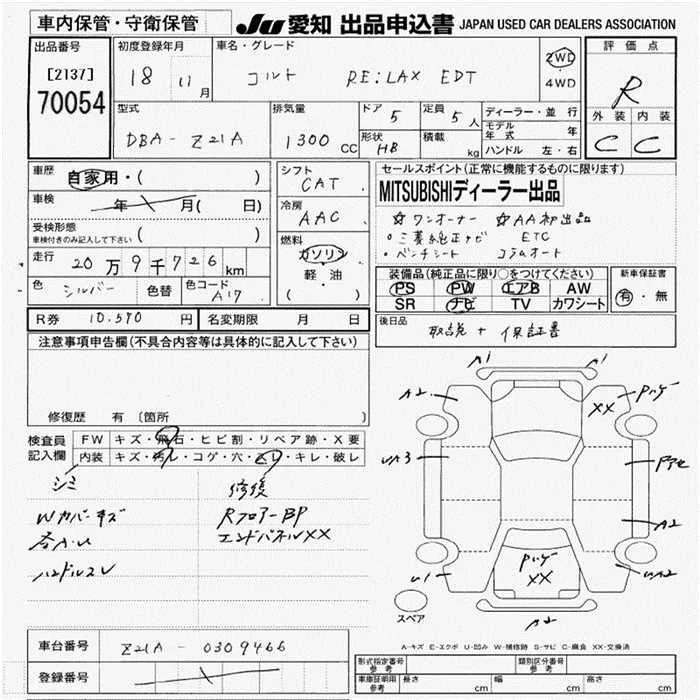 車内保管・守衛保管 JU 愛知 出品申込書 JAPAN USED CAR DEALERS ASSOCIATION
出品番号 [2137] 70054
初度登録年月 18 11月
車名・グレード コルト RE:LAX EDT
2WD・4WD
評価点 R
外装 内装
C C
型式 DBA-Z21A
排気量 1300CC
ドア 5
定員 5人
形状 HB
積載 kg
ディーラー・並行
モデル年式 年
ハンドル 左・右
車歴 自家用・( )
車検 年 月( 日)
受検形態 ( )
車検付きのみ記入して下さい
走行 20万9千726km
色 シルバー 色替 色コード A17
シフト CAT
冷房 AAC
燃料 ガソリン・軽・油 ( )
セールスポイント(正常に機能するものに限ります)
MITSUBISHIディーラー出品
☆ワンオーナー ☆AA初出品
・三菱純正ナビ ETC
・ベンチシート コラムオート
装備品(純正品に限り○をつけてください)
PS PW エアB AW
SR ナビ TV カワシート
新車保証書 有・無
R券 10,590円 名変期限 月 日
後日品 取説+保証書
注意事項申告欄(不具合内容等は具体的に記入して下さい)
修復歴 有〔箇所 〕
検査員記入欄
FW キズ・飛石・ヒビ割・リペア跡・X要
内装 キズ・汚レ・コゲ・穴・スレ・キレ・破レ
シミ
Wカバーキズ
各A・U
ハンドルスレ
修復
RフロアーBP
エンドパネルXX
A1 A1
A2 XX
UA3
A2
U1 XX UA2
A2
スペア
A-キズ E-エクボ U-凹み W-補修跡 S-サビ C-腐食 XX-交換済
車台番号 Z21A-0309466
登録番号
形式指定番号 参考 類別区分番号 参考
車庫証明用 参考 長さ cm 幅 cm 高さ cm